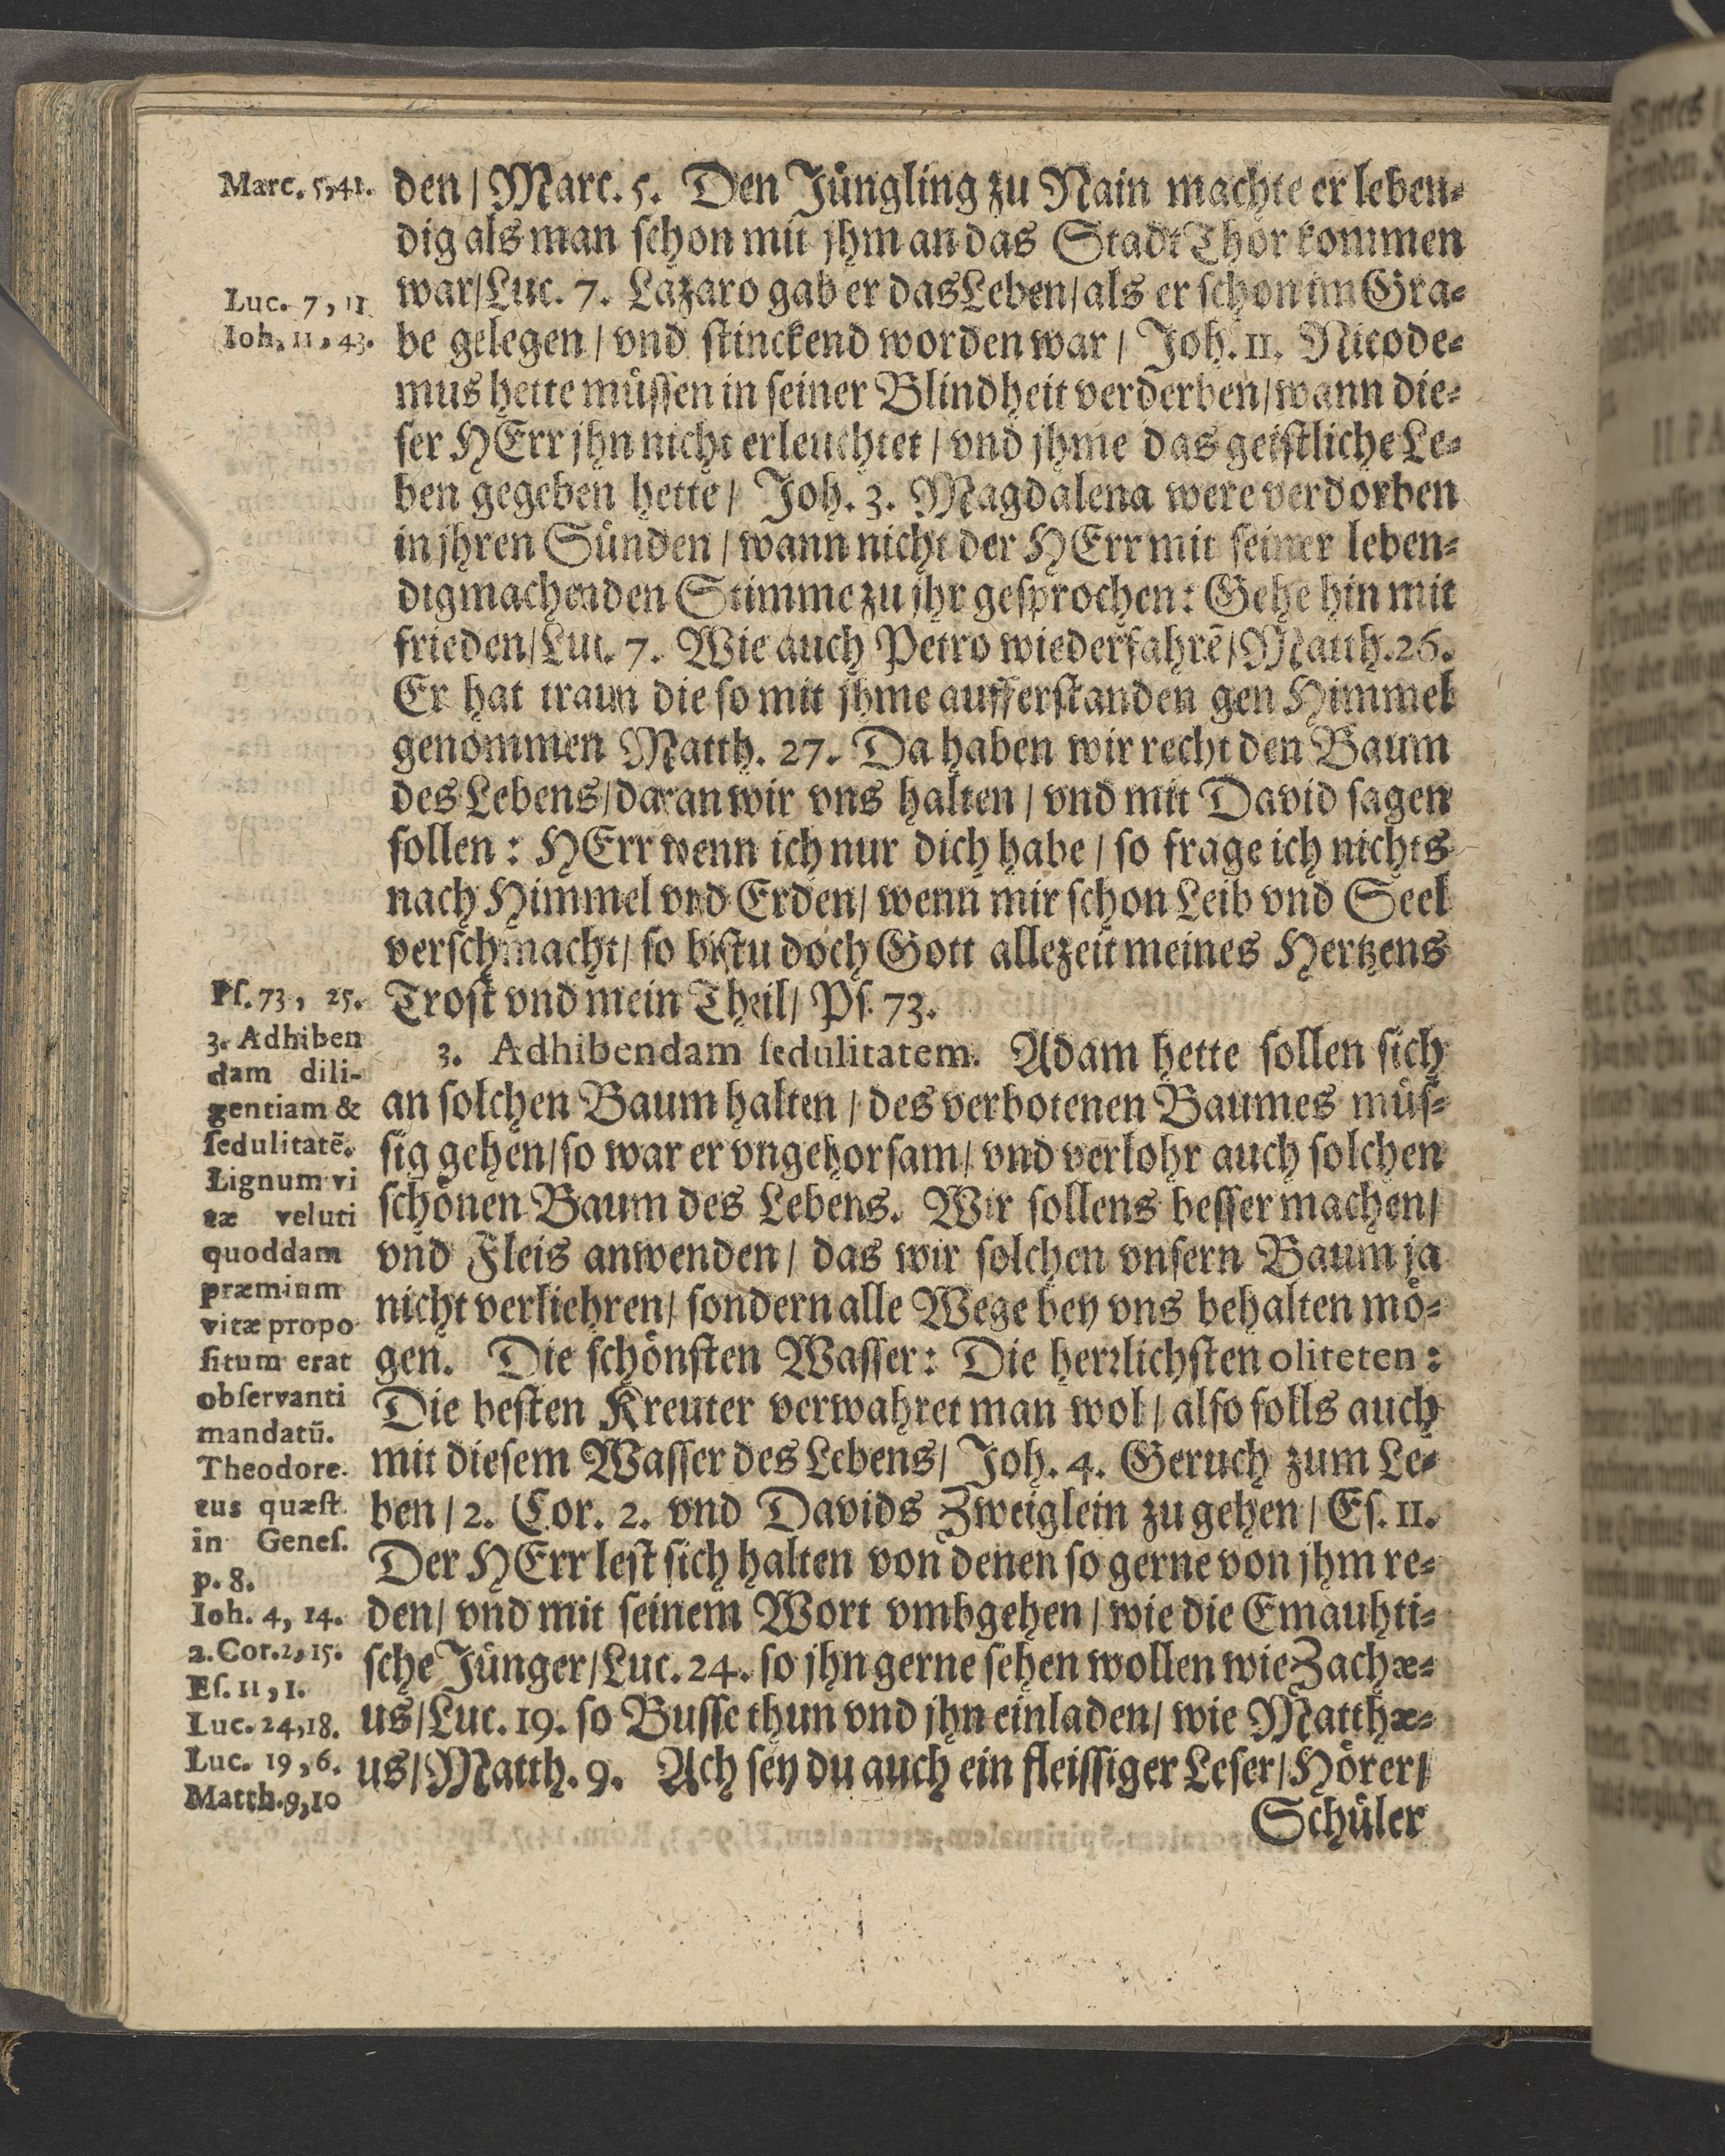 Marc. 5,41.
Luc. 7, 11
Ioh. 11, 43.
den / Marc. 5. Den Jüngling zu Nain machte er leben⸗
dig als man ſchon mit jhm an das Stadt Thor kommen
war/Luc. 7. Lazaro gab er das Leben/als er ſchon im Gra⸗
be gelegen / vnd ſtinckend worden war / Joh. 11. Nicode⸗
mus hette müſſen in ſeiner Blindheit verderben/wann die⸗
ſer HErr jhn nicht erleuchtet / vnd jhme das geiſtliche Le⸗
ben gegeben hette / Joh. 3. Magdalena were verdorben
in jhren Sünden / wann nicht der HErr mit ſeiner leben⸗
digmachenden Stimme zu jhr geſprochen: Gehe hin mit
frieden/Luc. 7. Wie auch Petro wiederfahrē/Matth.26.
Er hat traun die ſo mit jhme aufferſtanden gen Himmel
genommen Matth. 27. Da haben wir recht den Baum
des Lebens/daran wir vns halten / vnd mit David ſagen
ſollen: HErr wenn ich nur dich habe / ſo frage ich nichts
nach Himmel vnd Erden/ wenn mir ſchon Leib vnd Seel
verſchmacht/ ſo biſtu doch Gott allezeit meines Hertzens
Troſt vnd mein Theil/ Pſ. 73.
Pſ. 73, 25.
3. Adhiben
dam dili-
gentiam &
ſedulitatē.
Lignum vi
tæ veluti
quoddam
præmium
vitæ propo
ſitum erat
obſervanti
mandatū.
Theodore.
tus quæſt.
in Geneſ.
p. 8.
Ioh. 4, 14.
2. Cor. 2, 15.
Eſ. 11, 1.
Luc. 24,18.
Luc. 19, 6.
Matth.9,10
3. Adhibendam ſedulitatem. Adam hette ſollen ſich
an ſolchen Baum halten / des verbotenen Baumes müſ⸗
ſig gehen/ſo war er vngehorſam/ vnd verlohr auch ſolchen
ſchönen Baum des Lebens. Wir ſollens beſſer machen/
vnd Fleis anwenden / das wir ſolchen vnſern Baum ja
nicht verliehren/ ſondern alle Wege bey vns behalten mö⸗
gen. Die ſchönſten Waſſer: Die herrlichſten oliteten:
Die beſten Kreuter verwahret man wol / alſo ſolls auch
mit dieſem Waſſer des Lebens/ Joh. 4. Geruch zum Le⸗
ben / 2. Cor. 2. vnd Davids Zweiglein zu gehen / Eſ. 11.
Der HErr leſt ſich halten von denen ſo gerne von jhm re⸗
den/ vnd mit ſeinem Wort vmbgehen / wie die Emauhti⸗
ſche Jünger/Luc. 24. ſo jhn gerne ſehen wollen wie Zachæ⸗
us/Luc. 19. ſo Buſſe thun vnd jhn einladen/ wie Matthæ⸗
us/Matth. 9. Ach ſey du auch ein fleiſſiger Leſer/Hörer/
Schüler